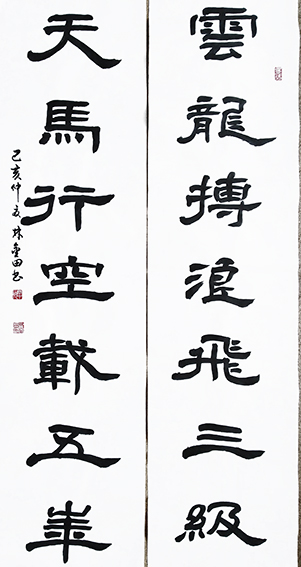 雲龍搏浪飛三級
天馬行空載五年
己亥仲夏林金田书